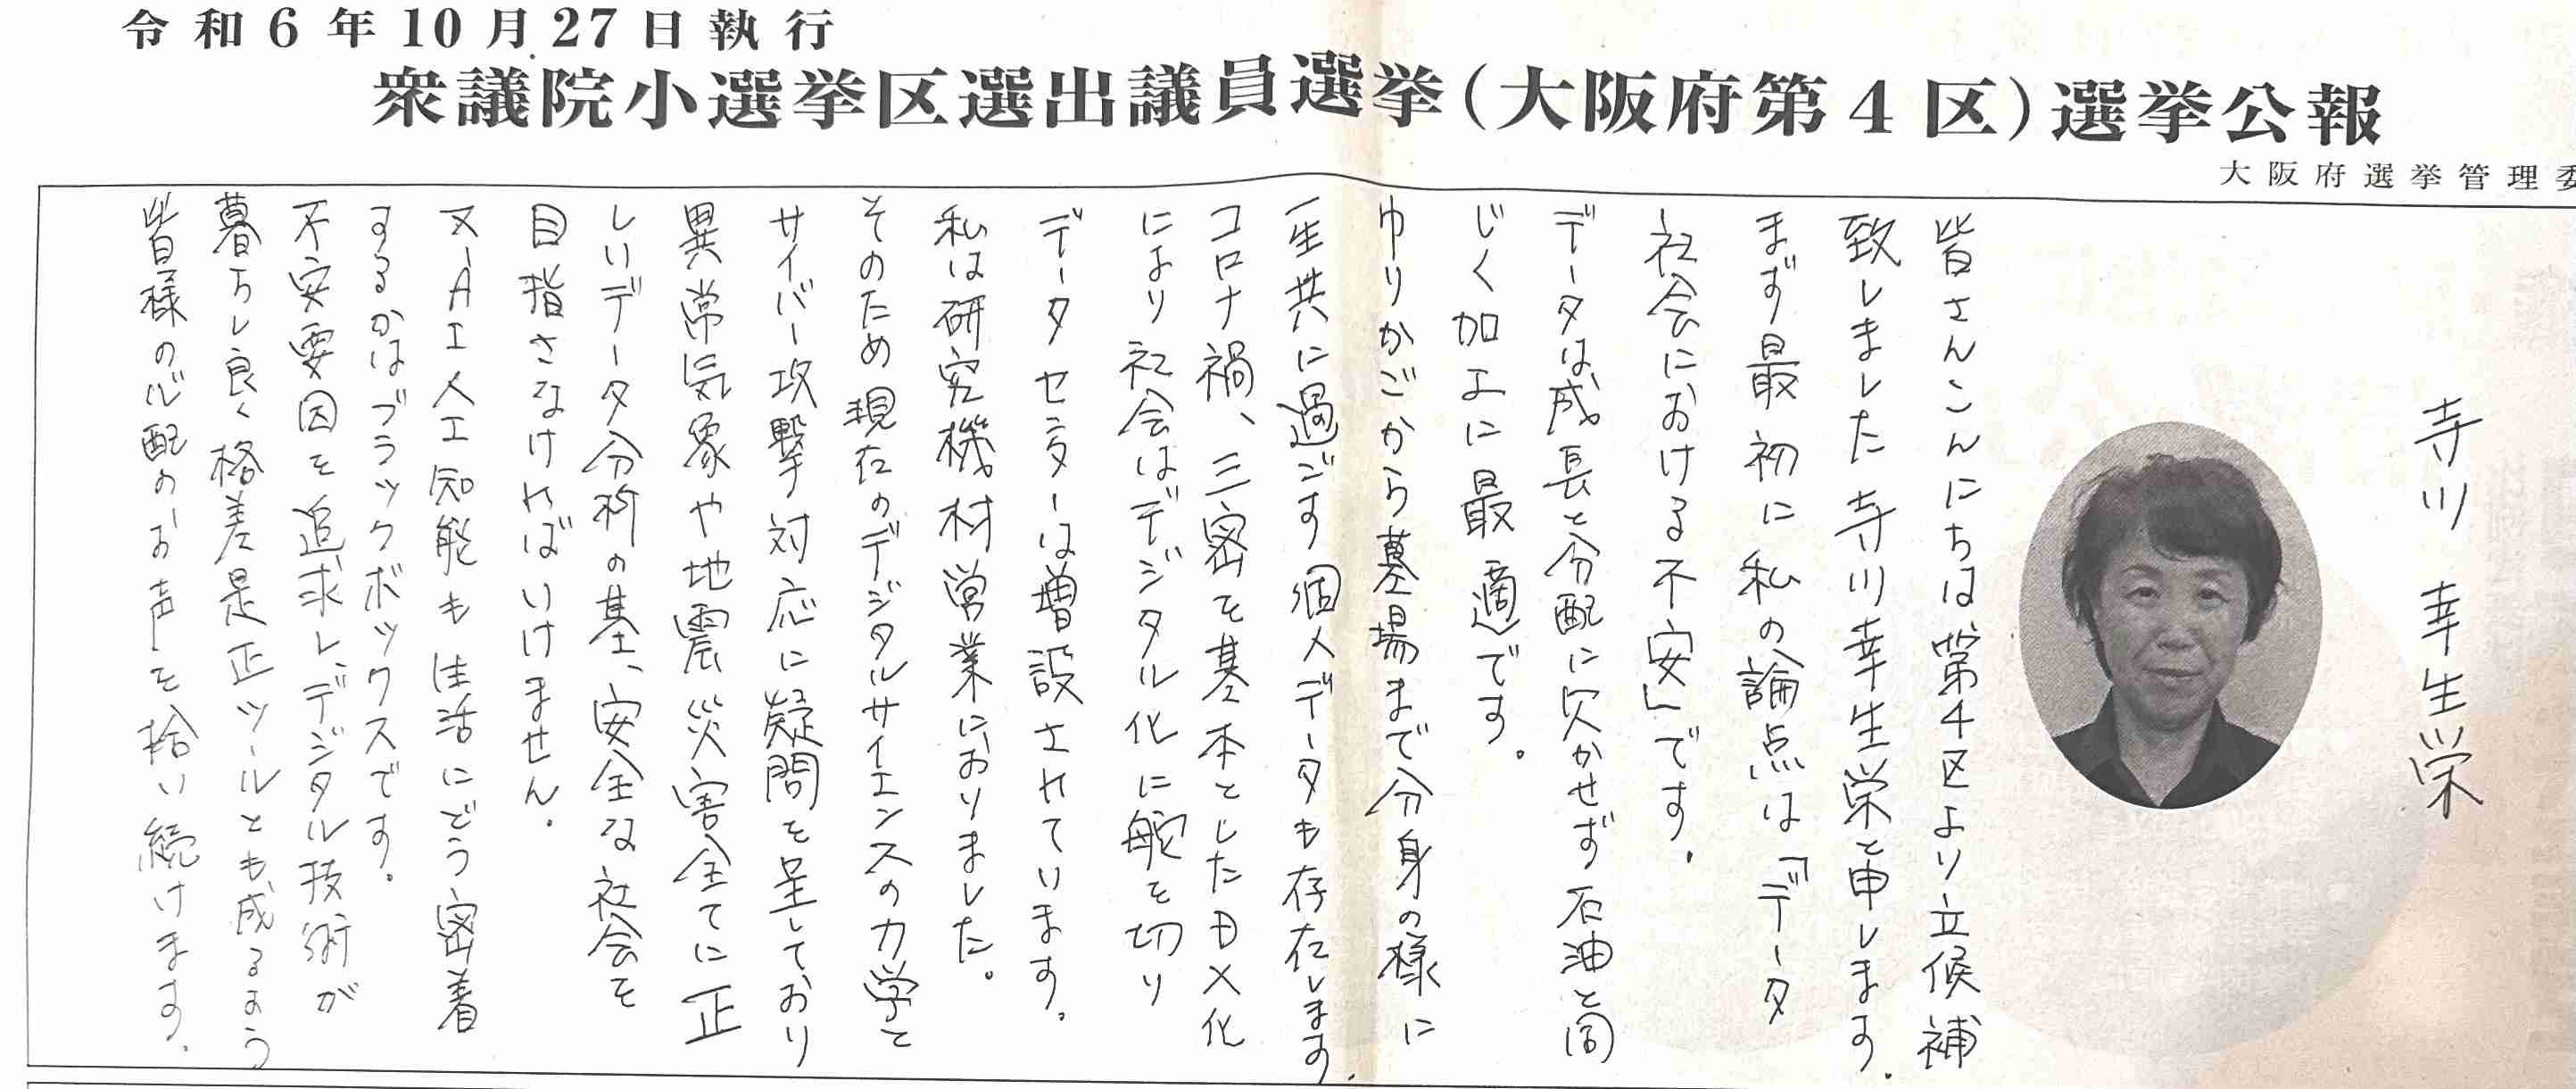 令和6年10月27日執行
衆議院小選挙区選出議員選挙(大阪府第4区)選挙公報
大阪府選挙管理委
寺川 幸生栄
皆さんこんにちは第4区より立候補
致しました寺川幸生栄と申します.
まず最初に私の論点は「データ
社会における不安」です.
データは成長と分配に欠かせず石油と同
じく加工に最適です.
ゆりかごから墓場まで分身の様に
一生共に過ごす個人データも存在します.
コロナ禍、三密を基本としたDX化
により社会はデジタル化に舵を切り
データセンターは増設されています.
私は研究機材営業におりました。
そのため現在のデジタルサイエンスの力学と
サイバー攻撃対応に疑問を呈しており
異常気象や地震災害全てに正
しいデータ分析の基、安全な社会を
目指さなければいけません.
又、AI人工知能も生活にどう密着
するかはブラックボックスです.
不安要因を追求し、デジタル技術が
暮らし良く格差是正ツールとも成るよう
皆様の心配のお声を拾い続けます.